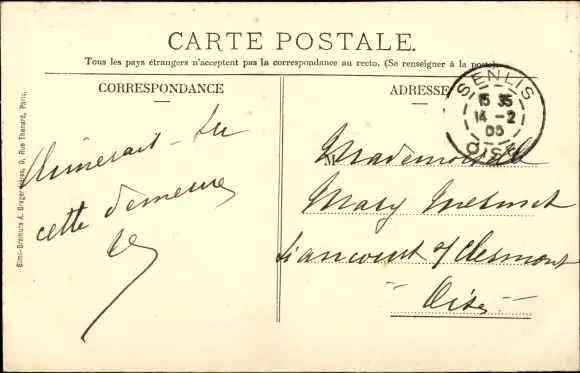 CARTE POSTALE.
Tous les pays étrangers n'acceptent pas la correspondance au recto. (Se renseigner à la poste).
CORRESPONDANCE
Aimerais-tu
cette demeure
Simi-Bromure A. Breger frères, 9, Rue Thenard, Paris.
ADRESSE
SENLIS
15 35
14 - 2
05
OISE
Mademoiselle
Mary Mesmet
Liancourt s/ Clermont
Oise